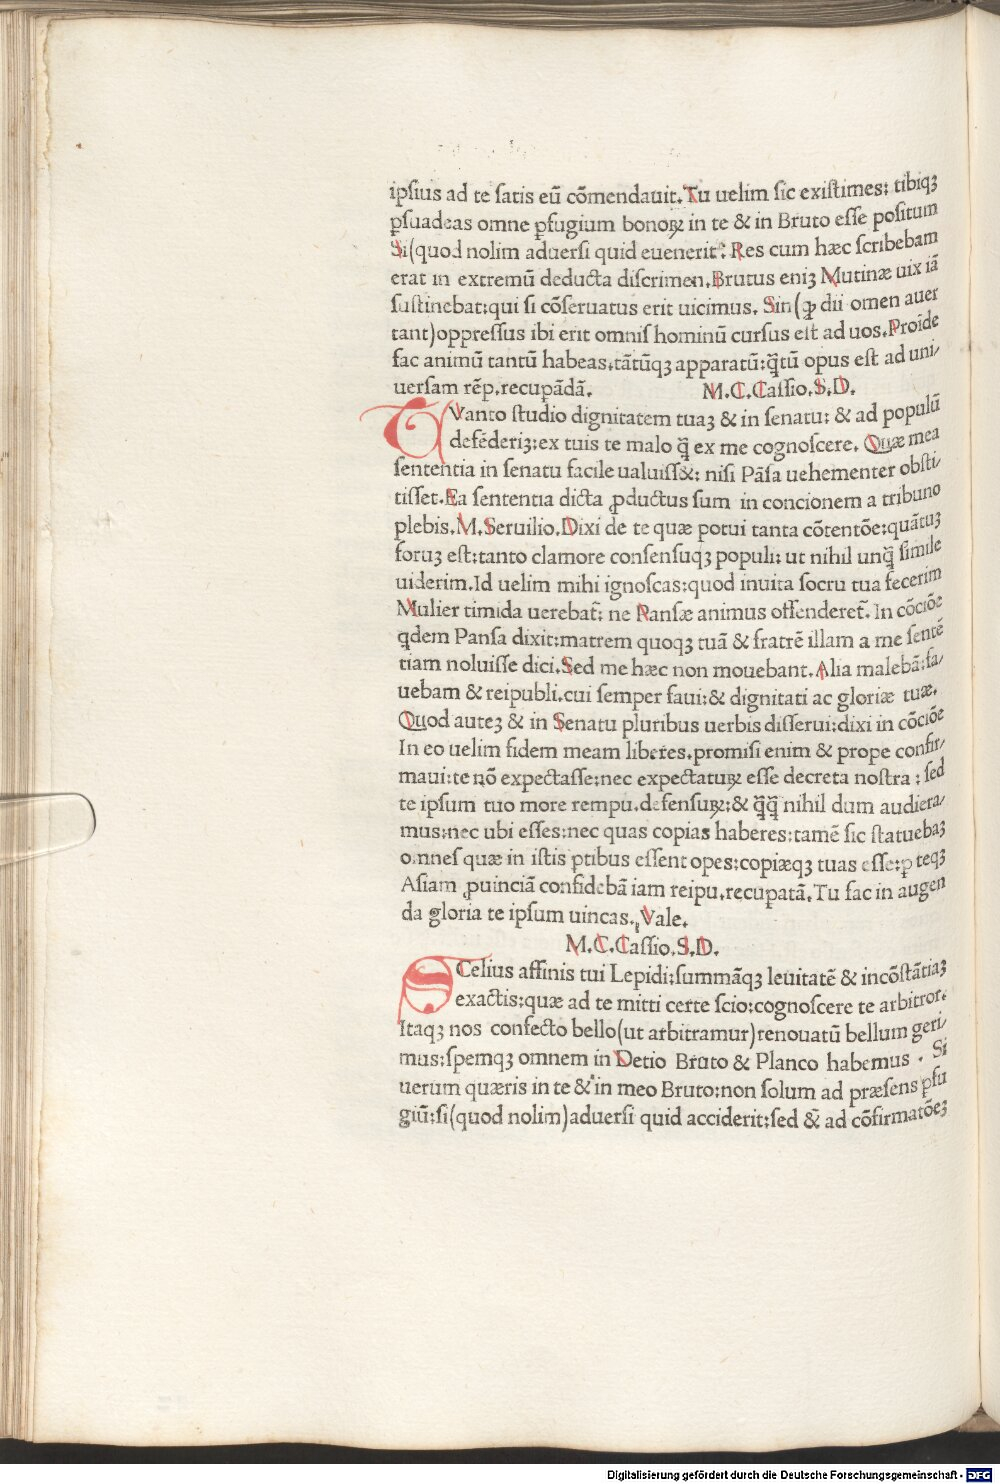 ipſius ad te ſatis eū cōmendauit. Tu uelim ſic exiſtimes: tibiqꝫ
ꝑſuadeas omne ꝑfugium bonoꝝ in te & in Bruto eſſe poſitum
Si(quod nolim aduerſi quid euenerit. Res cum hæc ſcribebam
erat in extremū deducta diſcrimen. Brutus enīꝫ Mutinæ uix iā
ſuſtinebat:qui ſi cōſeruatus erit uicimus. Sin(ꝙ dii omen auer
tant)oppreſſus ibi erit omniſ hominū curſus eſt ad uos. Proīde
fac animū tantū habeas,tātūqꝫ apparatū:q̄tū opus eſt ad uni/
uerſam rēp. recupādā.
M.C.Caſſio.S.D.
QVanto ſtudio dignitatem tuaꝫ & in ſenatu: & ad populū
defēderiꝫ:ex tuis te malo q̄ ex me cognoſcere. Quæ mea
ſententia in ſenatu facile ualuiſſ&: niſi Pāſa uehementer obſti/
tiſſet. Ea ſententia dicta ꝓductus ſum in concionem a tribuno
plebis. M. Seruilio. Dixi de te quæ potui tanta cōtentōe:quātuꝫ
foruꝫ eſt:tanto clamore conſenſuqꝫ populi: ut nihil unq̄ ſimile
uiderim. Id uelim mihi ignoſcas:quod inuita ſocru tua fecerim
Mulier timida uerebat̄: ne Panſæ animus offenderet̄. In cōciōe
q̄dem Panſa dixit:matrem quoqꝫ tuā & fratrē illam a me ſentē
tiam noluiſſe dici. Sed me hæc non mouebant. Alia malebā:fa/
uebam & reipubli.cui ſemper faui:& dignitati ac gloriæ tuæ.
Quod auteꝫ & in Senatu pluribus uerbis diſſerui:dixi in cōciōe
In eo uelim fidem meam liberes.promiſi enim & prope confir/
maui:te nō expectaſſe:nec expectatuꝝ eſſe decreta noſtra : ſed
te ipſum tuo more rempu.defenſuꝝ:& q̄q̄ nihil dum audiera/
mus:nec ubi eſſes:nec quas copias haberes:tamē ſic ſtatuebaꝫ
omneſ quæ in iſtis ꝑtibus eſſent opes:copiæqꝫ tuas eſſe:ꝑ teqꝫ
Aſiam ꝓuinciā confidebā iam reipu.recupatā. Tu fac in augen
da gloria te ipſum uincas. Vale.
M.C.Caſſio.S.D.
SCelius affinis tui Lepidi:ſummāqꝫ leuitatē & incōſtātiaꝫ
exactis:quæ ad te mitti certe ſcio:cognoſcere te arbitror.
Itaqꝫ nos confecto bello(ut arbitramur)renouatū bellum geri/
mus:ſpemqꝫ omnem in Detio Bruto & Planco habemus . Si
uerum quæris in te & in meo Bruto:non ſolum ad præſens ꝑfu
giū:ſi(quod nolim)aduerſi quid acciderit:ſed & ad cōfirmatōeꝫ
Digitalisierung gefördert durch die Deutsche Forschungsgemeinschaft - DFG